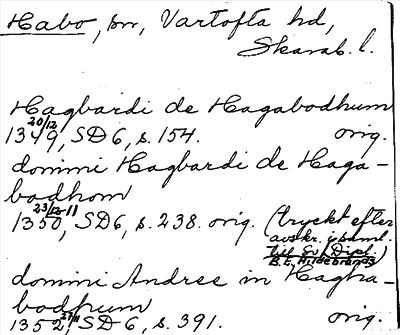 Habo, sn, Vartofta hd,
Skarab. l.
Hagbardi de Hagabodhum
20/12 1349, SD 6, s. 154. orig.
domini Hagbardi de Haga-
bodhom
1350, SD 6, s. 238. orig. (tryckt efter
avskr. i saml.
till Sv. Dipl.)
B.E. Hildebrands
domini Andree in Hagha-
bodhum
1352, SD 6, s. 391. orig.